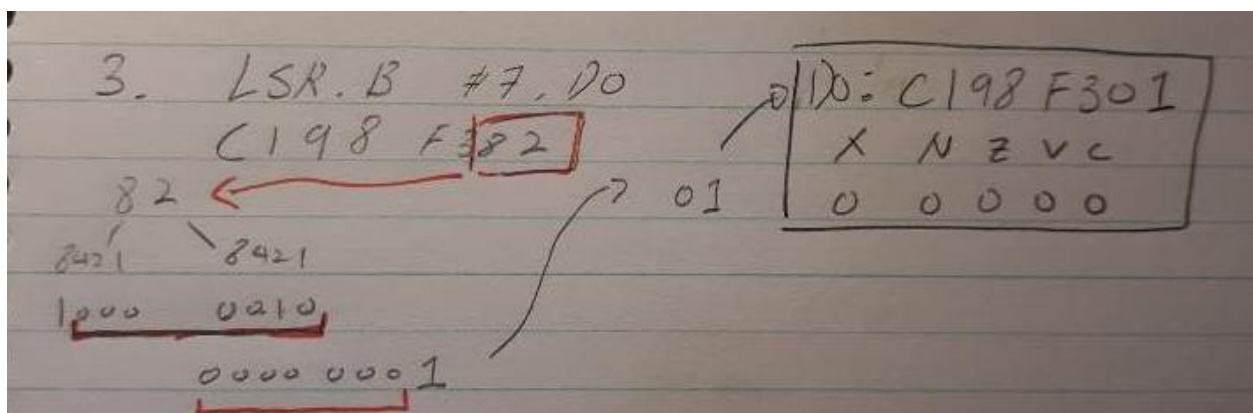 3. LSR.B #7, D0
C198 F382
82
8421 8421
1000 0010
0000 0001
01
D0: C198 F301
X N Z V C
0 0 0 0 0